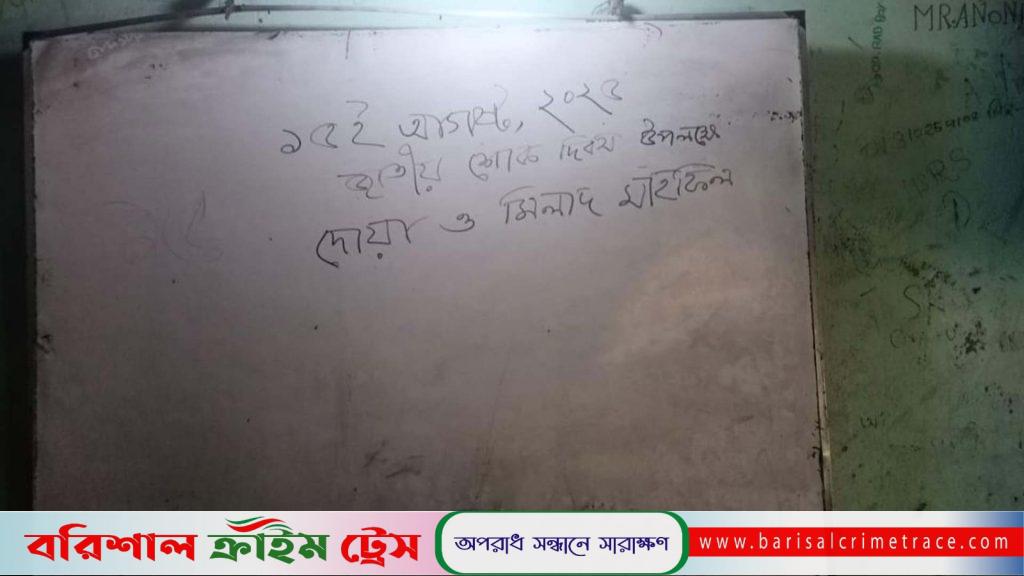 ১৫ই আগষ্ট, ২০২৫
জাতীয় শোক দিবস উপলক্ষে
দোয়া ও মিলাদ মাহফিল
MRANON
RS
SK
বরিশাল ক্রাইম ট্রেস
অপরাধ সন্ধানে সারাক্ষণ
www.barisalcrimetrace.com